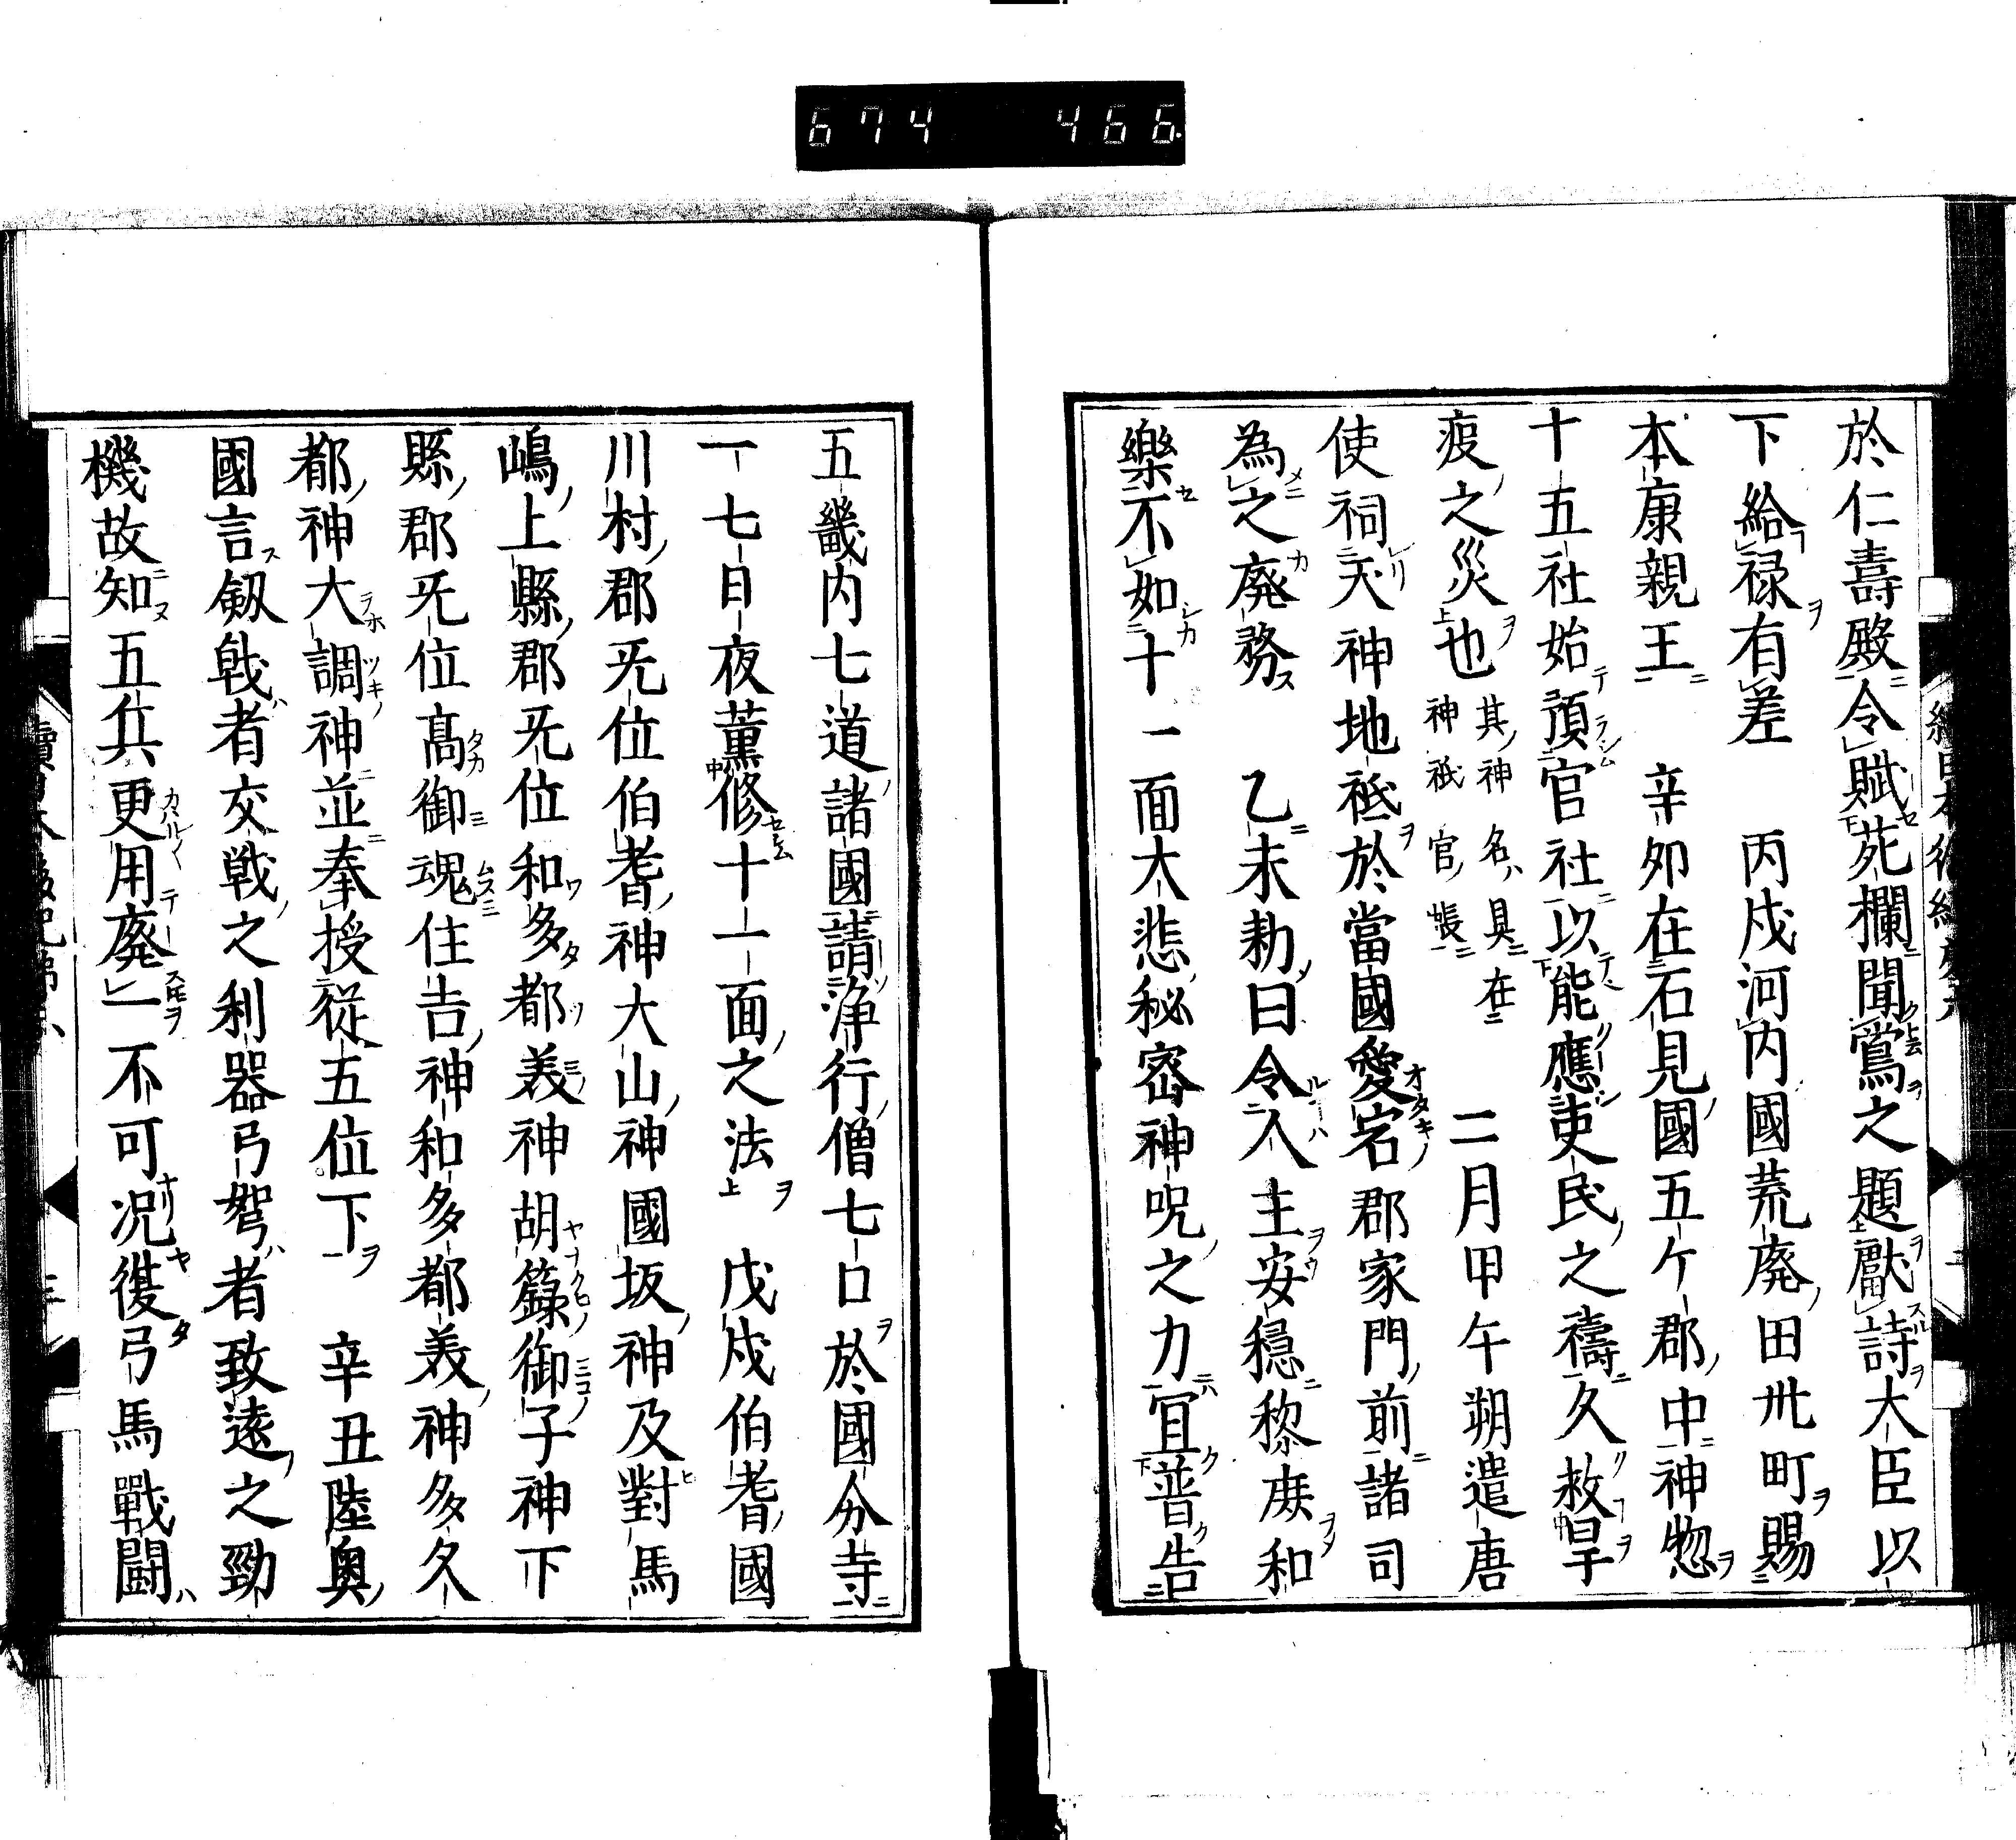 674 466
於仁壽殿令賦苑欄聞鴬之題獻詩大臣以
下給禄有差 丙戍河内國荒廃田卅町賜
本康親王 辛夘在石見國五ケ郡中神惣
十五社始預官社以能應吏民之禱久救旱
疫之災也其神名具在神祇官帳 二月甲午朔遣唐
使祠天神地祗於當國愛宕郡家門前諸司
為之廃務 乙未勅曰令人主安穏黎庻和
樂不如十一面大悲秘密神呪之力宜普告
五畿内七道諸國請淨行僧七口於國分寺
一七日夜薫修十一面之法 戊戍伯耆國
川村郡旡位伯耆神大山神國坂神及對馬
嶋上縣郡旡位和多都美神胡簶御子神下
縣郡旡位髙御魂住吉神和多都美神多久
都神大調神並奉授従五位下 辛丑陸奥
國言劔戟者交戦之利器弓弩者致遠之勁
機故知五兵更用廃一不可况復弓馬戰鬪